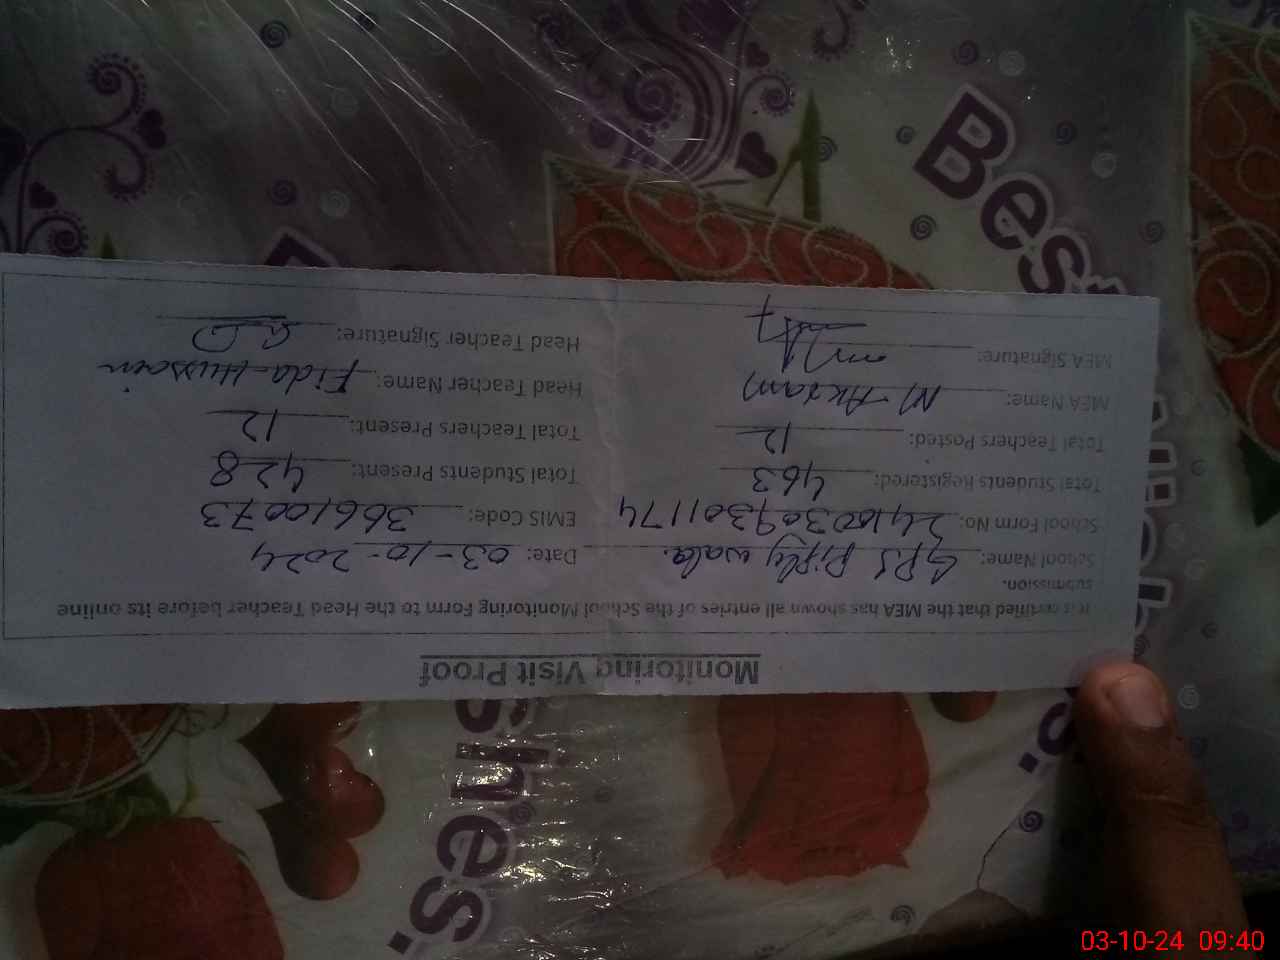 Monitoring Visit Proof
It is certified that the MEA has shown all entries of the School Monitoring Form to the Head Teacher before its online
submission.
School Name: GPS Piply wala. Date: 03-10-2024
School Form No: 24100309301174 EMIS Code: 36610073
Total Students Registered: 463 Total Students Present: 428
Total Teachers Posted: 12 Total Teachers Present: 12
MEA Name: M-Akram Head Teacher Name: Fida Hussain
MEA Signature: Head Teacher Signature:
Best
Wishes.
03-10-24 09:40